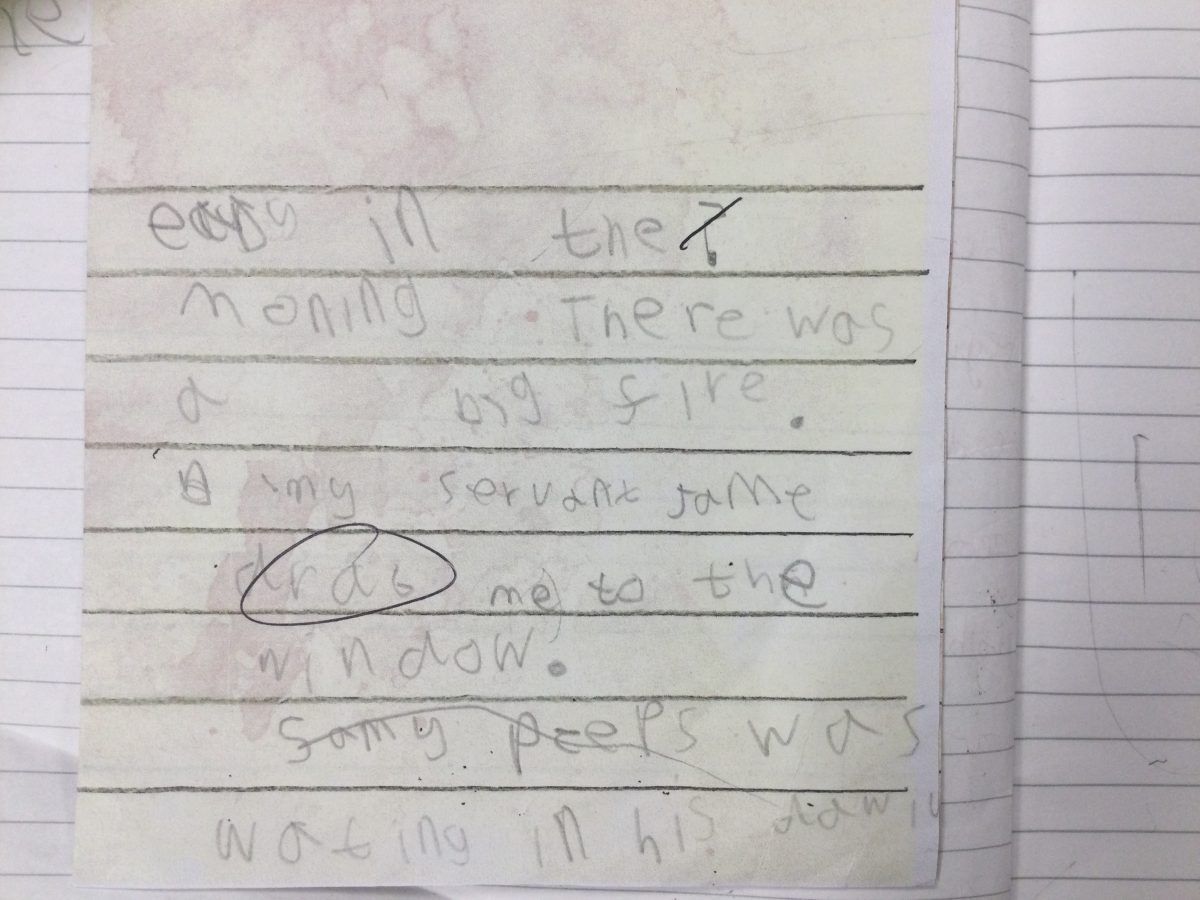 in the
moning . There was
a big fire.
my servant Jame
me to the
window.
Samy peeps was
wating in his